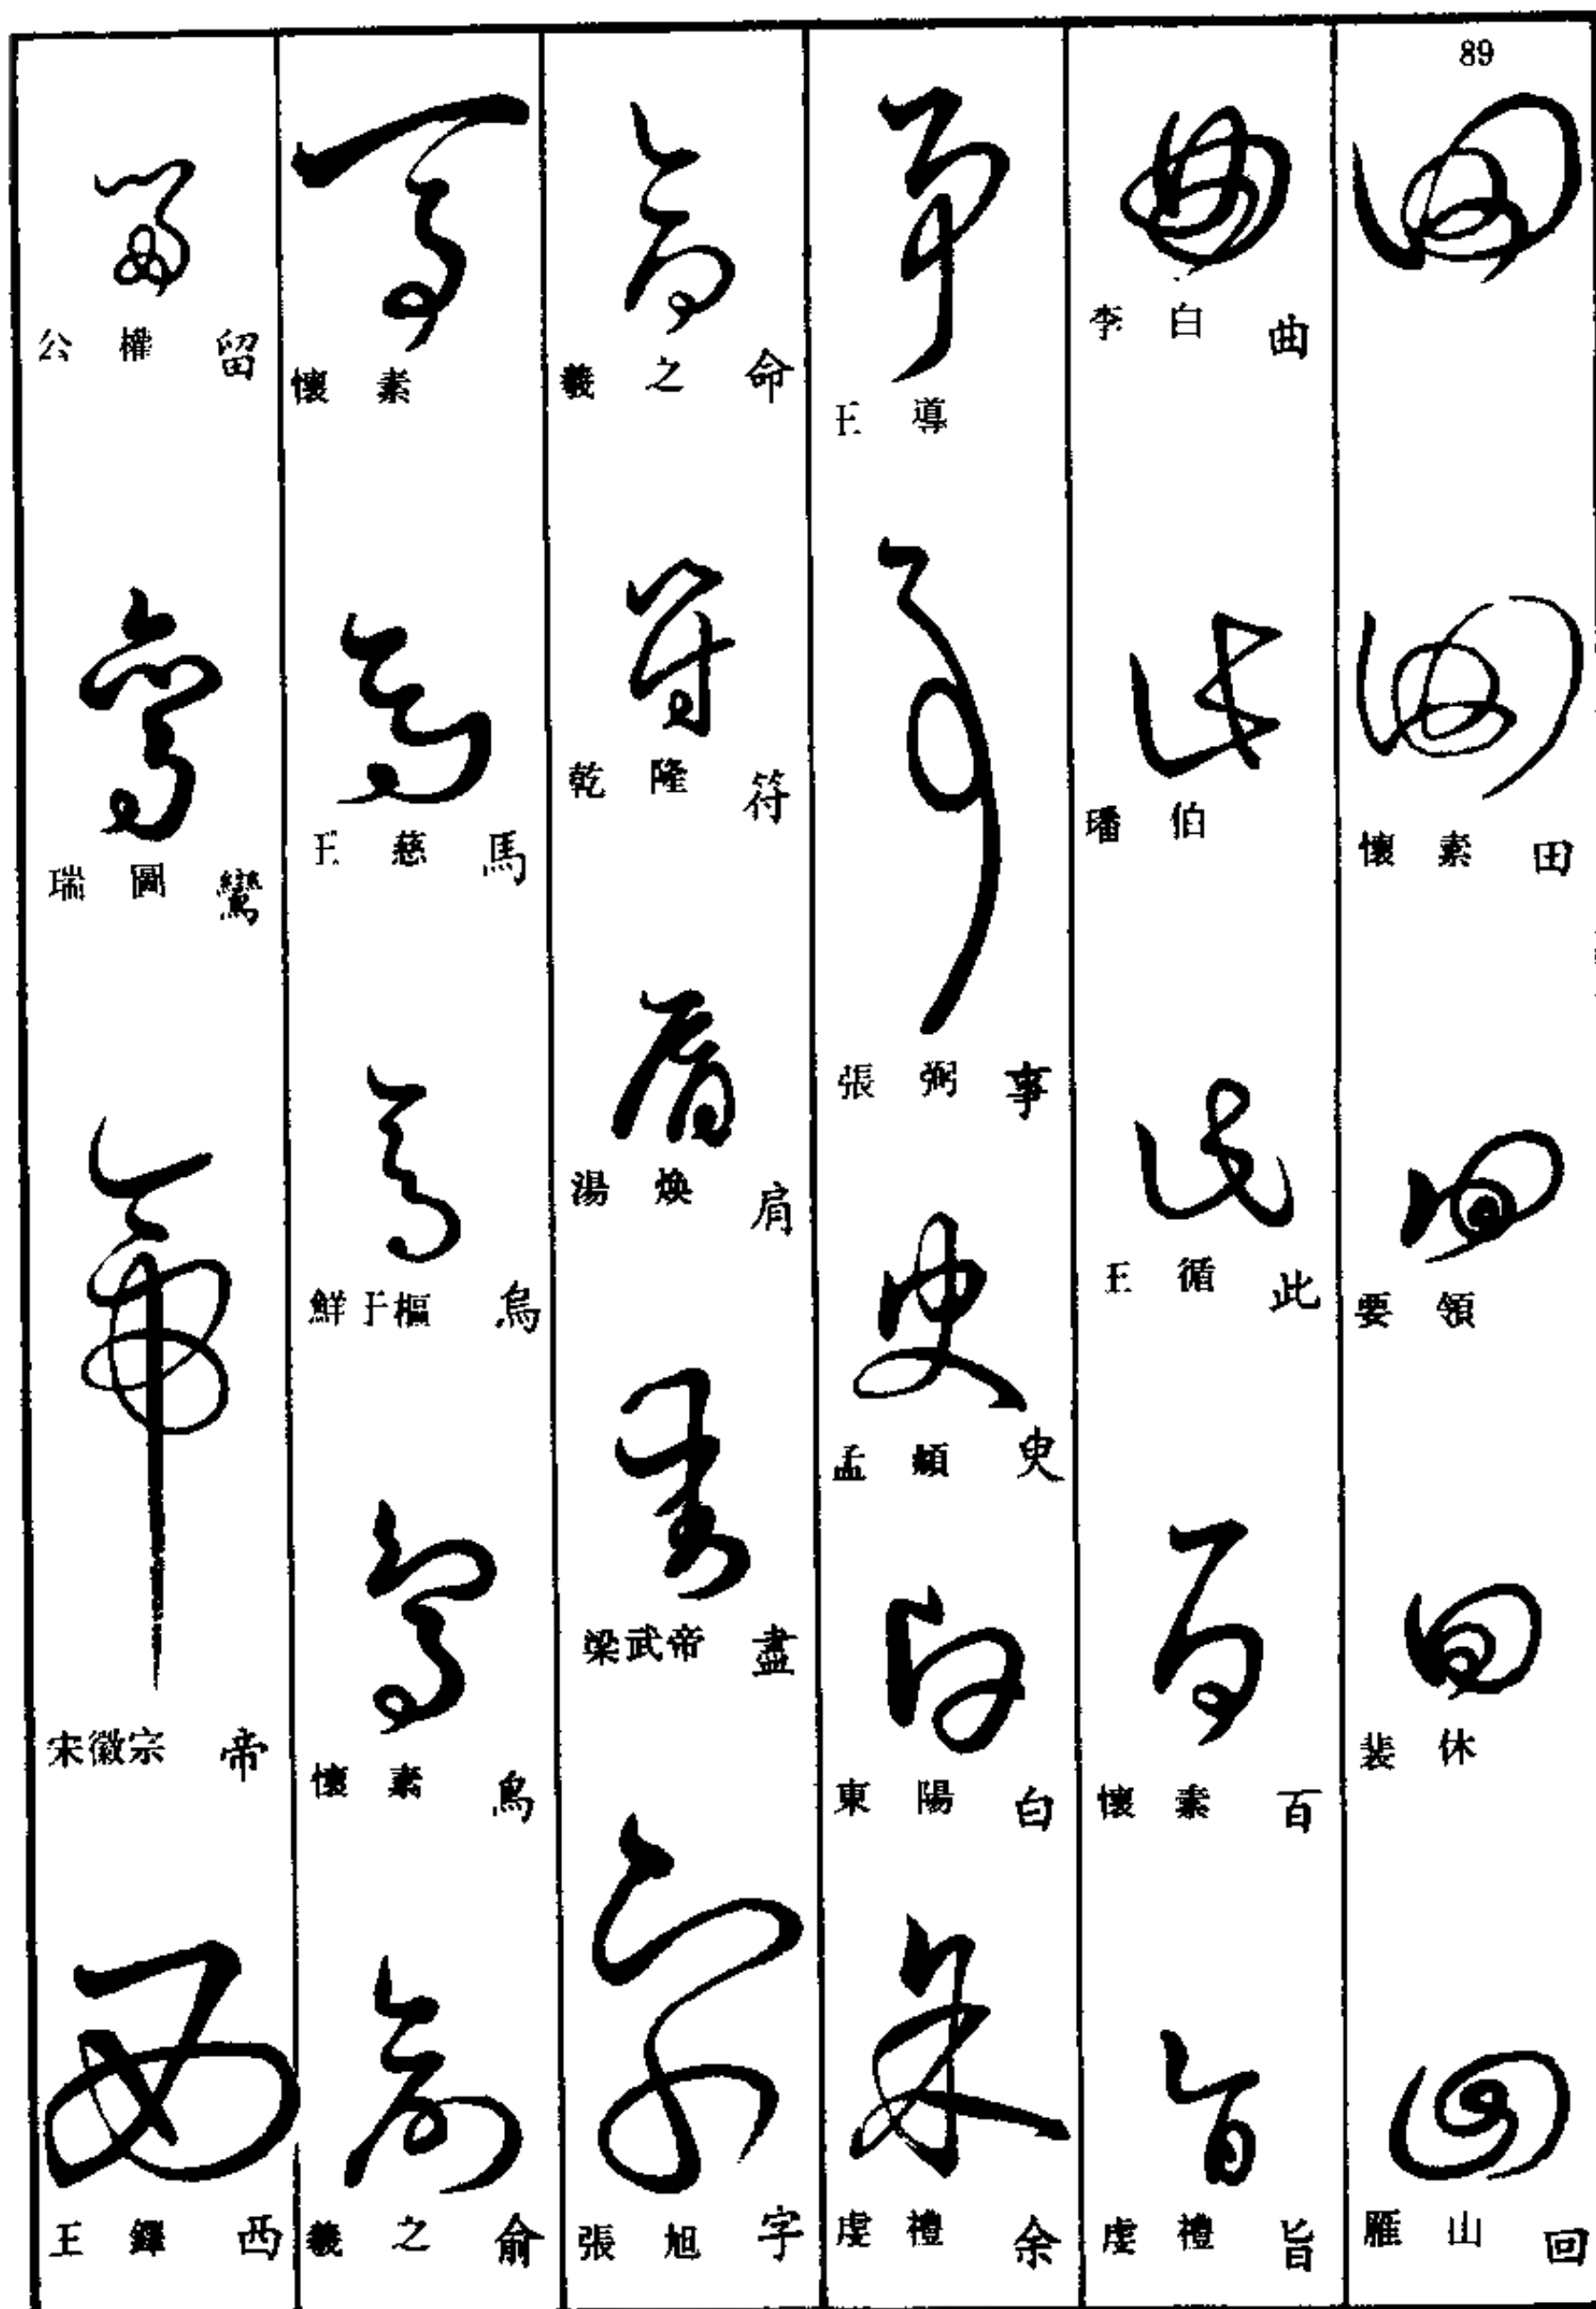 89
懷素 田
要領
裴休
雁山 回
李白 曲
璠伯
王循 此
懷素 百
虔禮 旨
王導
張弼 事
孟頫 史
東陽 白
虔禮 余
羲之 命
乾隆 符
湯煥 肩
梁武帝 盡
張旭 字
懷素
王慈 馬
鮮于樞 烏
懷素 鳥
羲之 俞
公權 留
瑞圖 鸞
宋徽宗 帝
王鐸 西